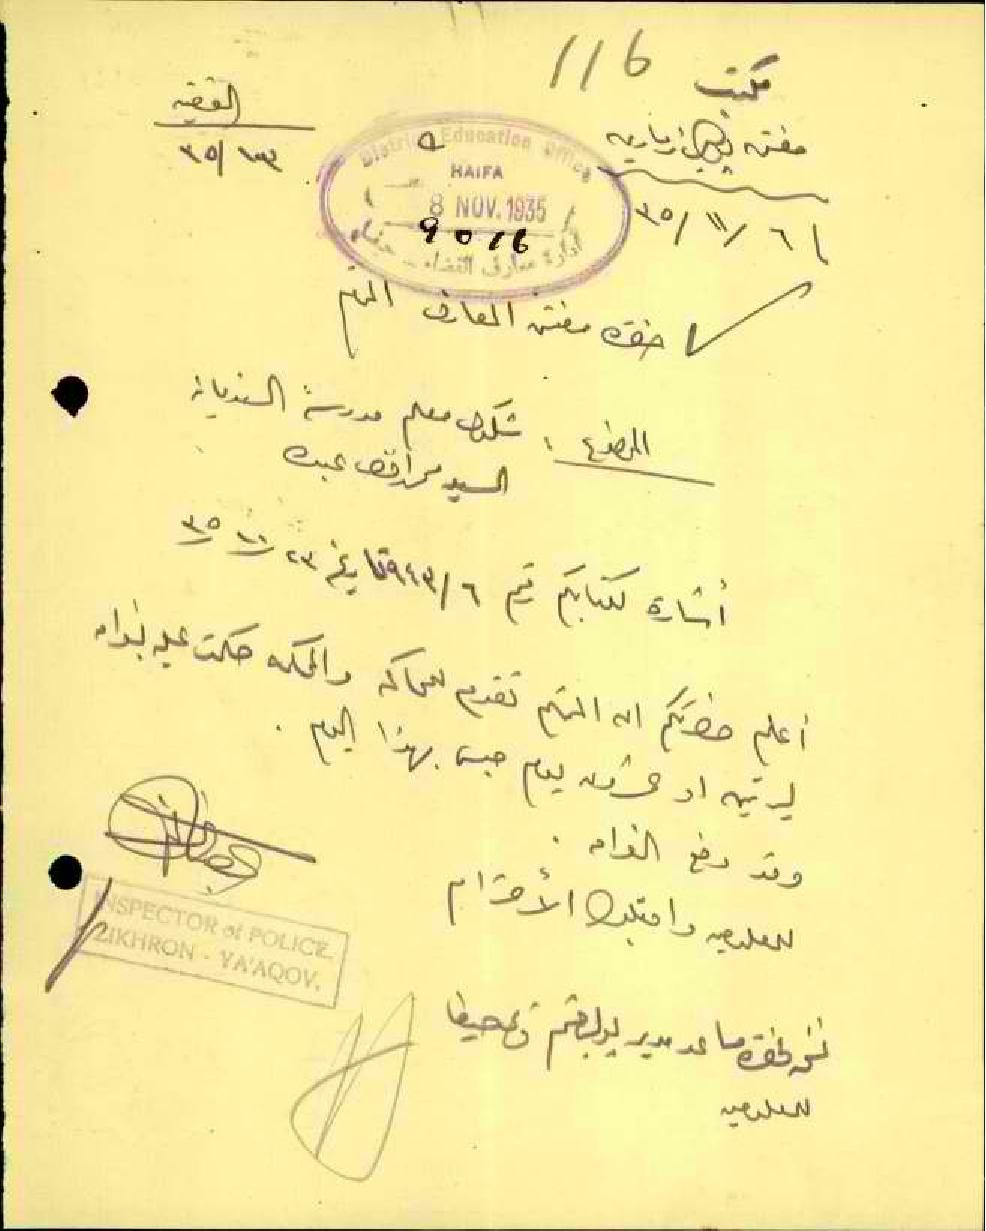 116
مكتب
مفتش بوليس زمارين
٣٥/١١/٦
القضية
٣٥/١٣٣
District Education Office
HAIFA
8 NOV. 1935
9016
ادارة معارف القضاء - حيفا
حضرة مفتش المعارف المحترم
الموضوع : شكوى معلم مدرسة السنديانة
السيد عبده
أشارة لكتابكم رقم ٩٤٣/٦ تاريخ ٢٣ ٣٥
أعلم حضرتكم ان المتهم تقدم للمحاكمة والمحكمة حكمت عليه بغرامة
ليرتين او عشرون يوم حبس بهذا اليوم .
وقد دفع الغرامة .
للمعلومية واقبلوا الأحترام
INSPECTOR of POLICE.
ZIKHRON - YA'AQOV.
نسخة لحضرة مساعد مدير بوليس حيفا
للمعلومية